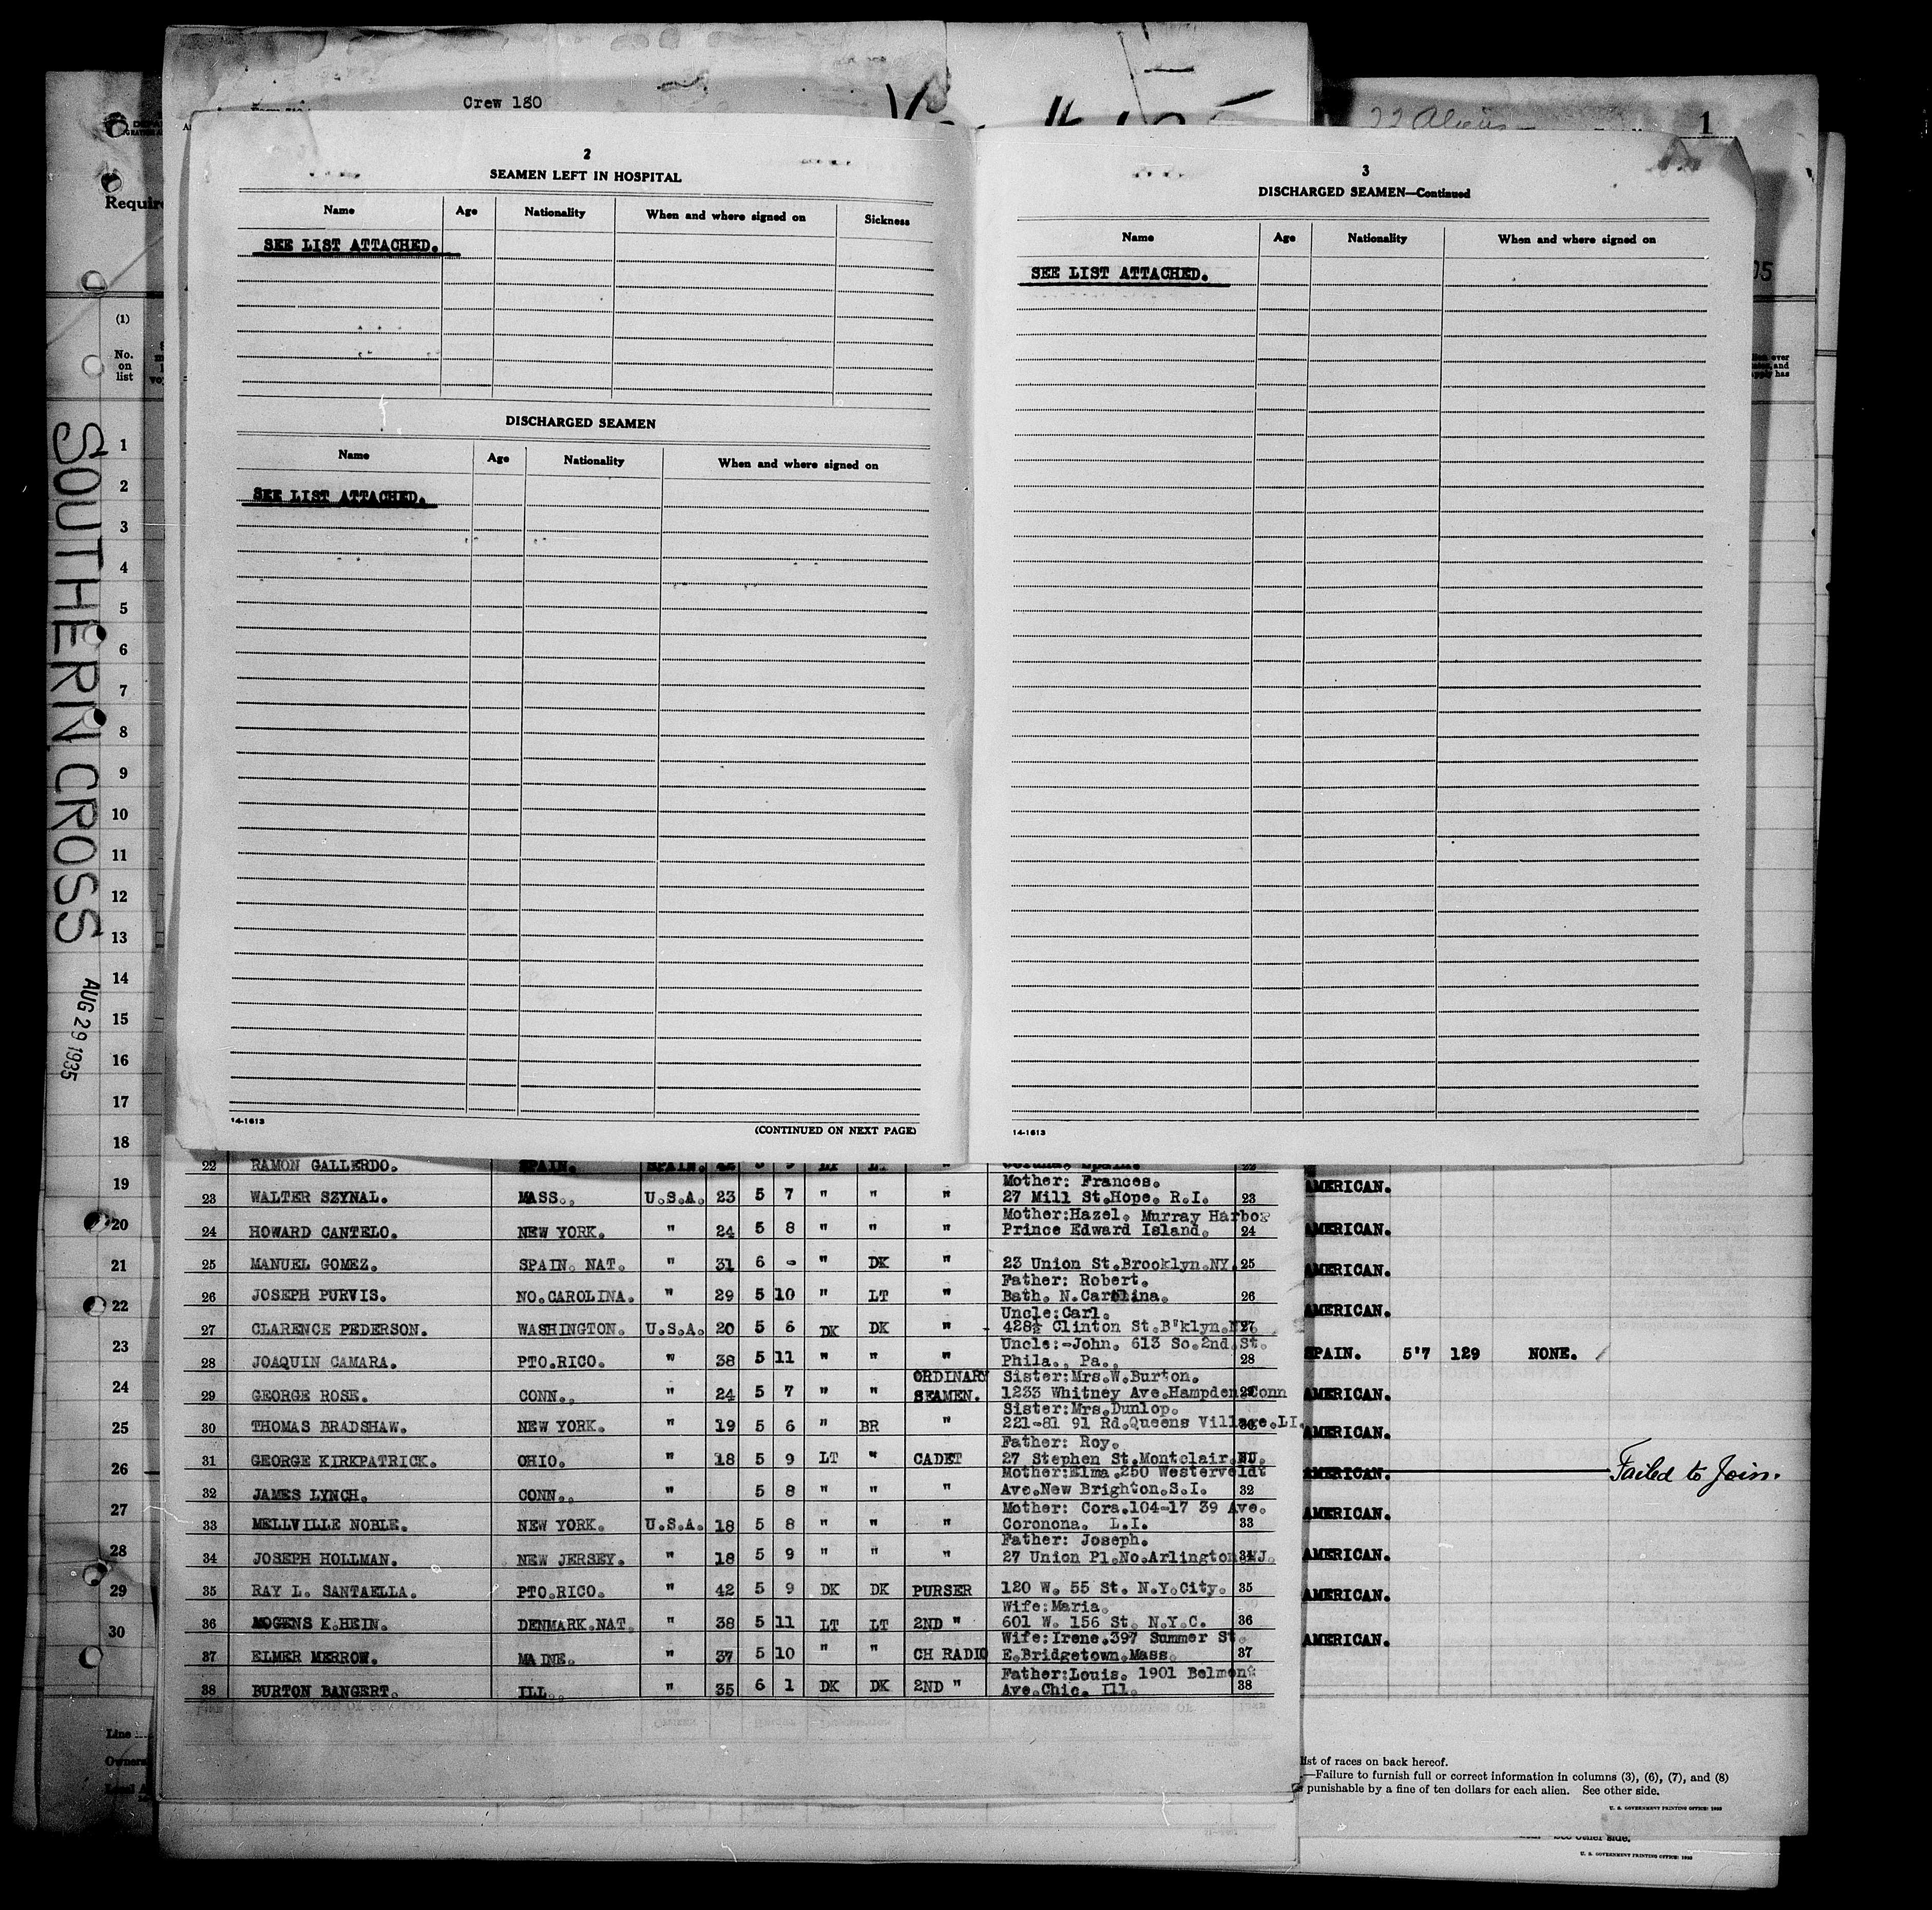 Crew 180
22 Aliens
1
Require
2
SEAMEN LEFT IN HOSPITAL
Name Age Nationality When and where signed on Sickness
SEE LIST ATTACHED.
DISCHARGED SEAMEN
Name Age Nationality When and where signed on
SEE LIST ATTACHED.
14-1613
(CONTINUED ON NEXT PAGE)
3
DISCHARGED SEAMEN—Continued
Name Age Nationality When and where signed on
SEE LIST ATTACHED.
14-1613
(1)
No.
on
list
1
2
3
4
5
6
7
8
9
10
11
12
13
14
15
16
17
18
19
20
21
22
23
24
25
26
27
28
29
30
SOUTHERN CROSS
AUG 29 1935
Line
Owners
22 RAMON GALLERDO. SPAIN. SPAIN. 42 5 9 LT LT " Coruna, Spain. 22
Mother: Frances.
23 WALTER SZYNAL. MASS., U.S.A. 23 5 7 " " " 27 Mill St.Hope. R.I. 23
Mother:Hazel. Murray Harbor
24 HOWARD CANTELO. NEW YORK. " 24 5 8 " " " Prince Edward Island. 24
25 MANUEL GOMEZ. SPAIN. NAT. " 31 6 - " DK " 23 Union St.Brooklyn.NY. 25
Father: Robert.
26 JOSEPH PURVIS. NO.CAROLINA. " 29 5 10 " LT " Bath. N.Carolina. 26
Uncle:Carl.
27 CLARENCE PEDERSON. WASHINGTON. U.S.A. 20 5 6 DK DK " 428½ Clinton St.B'klyn.NY. 27
Uncle:-John. 613 So.2nd.St.
28 JOAQUIN CAMARA. PTO.RICO. " 38 5 11 " " " Phila., Pa., 28
ORDINARY Sister:Mrs.W.Burton.
29 GEORGE ROSE. CONN., " 24 5 7 " " SEAMEN. 1233 Whitney Ave.Hampden.Conn 29
Sister:Mrs.Dunlop.
30 THOMAS BRADSHAW. NEW YORK. " 19 5 6 " BR " 221-81 91 Rd.Queens Village.LI. 30
Father: Roy.
31 GEORGE KIRKPATRICK. OHIO. " 18 5 9 LT " CADET 27 Stephen St.Montclair.NJ. 31
Mother:Elma.250 Westerveldt
32 JAMES LYNCH. CONN., " 5 8 " " " Ave.New Brighton.S.I. 32
Mother: Cora.104-17 39 Ave.
33 MELLVILLE NOBLE. NEW YORK. U.S.A. 18 5 8 " " " Coronona. L.I. 33
Father: Joseph.
34 JOSEPH HOLLMAN. NEW JERSEY. " 18 5 9 " " " 27 Union Pl.No.Arlington.NJ. 34
35 RAY L. SANTAELLA. PTO.RICO. " 42 5 9 DK DK PURSER 120 W. 55 St. N.Y.City. 35
Wife:Maria.
36 MOGENS K.HEIN. DENMARK.NAT. " 38 5 11 LT LT 2ND " 601 W. 156 St. N.Y.C. 36
Wife:Irene.397 Summer St.
37 ELMER MERROW. MAINE. " 37 5 10 " " CH RADIO E.Bridgetown.Mass. 37
Father:Louis. 1901 Belmont
38 BURTON BANGERT. ILL., " 35 6 1 DK DK 2ND " Ave.Chic. Ill. 38
AMERICAN.
AMERICAN.
AMERICAN.
AMERICAN.
SPAIN. 5'7 129 NONE.
AMERICAN.
AMERICAN.
AMERICAN. Failed to Join.
AMERICAN.
AMERICAN.
AMERICAN.
AMERICAN.
list of races on back hereof.
—Failure to furnish full or correct information in columns (3), (6), (7), and (8)
punishable by a fine of ten dollars for each alien. See other side.
U. S. GOVERNMENT PRINTING OFFICE:
See other side.
U. S. GOVERNMENT PRINTING OFFICE: